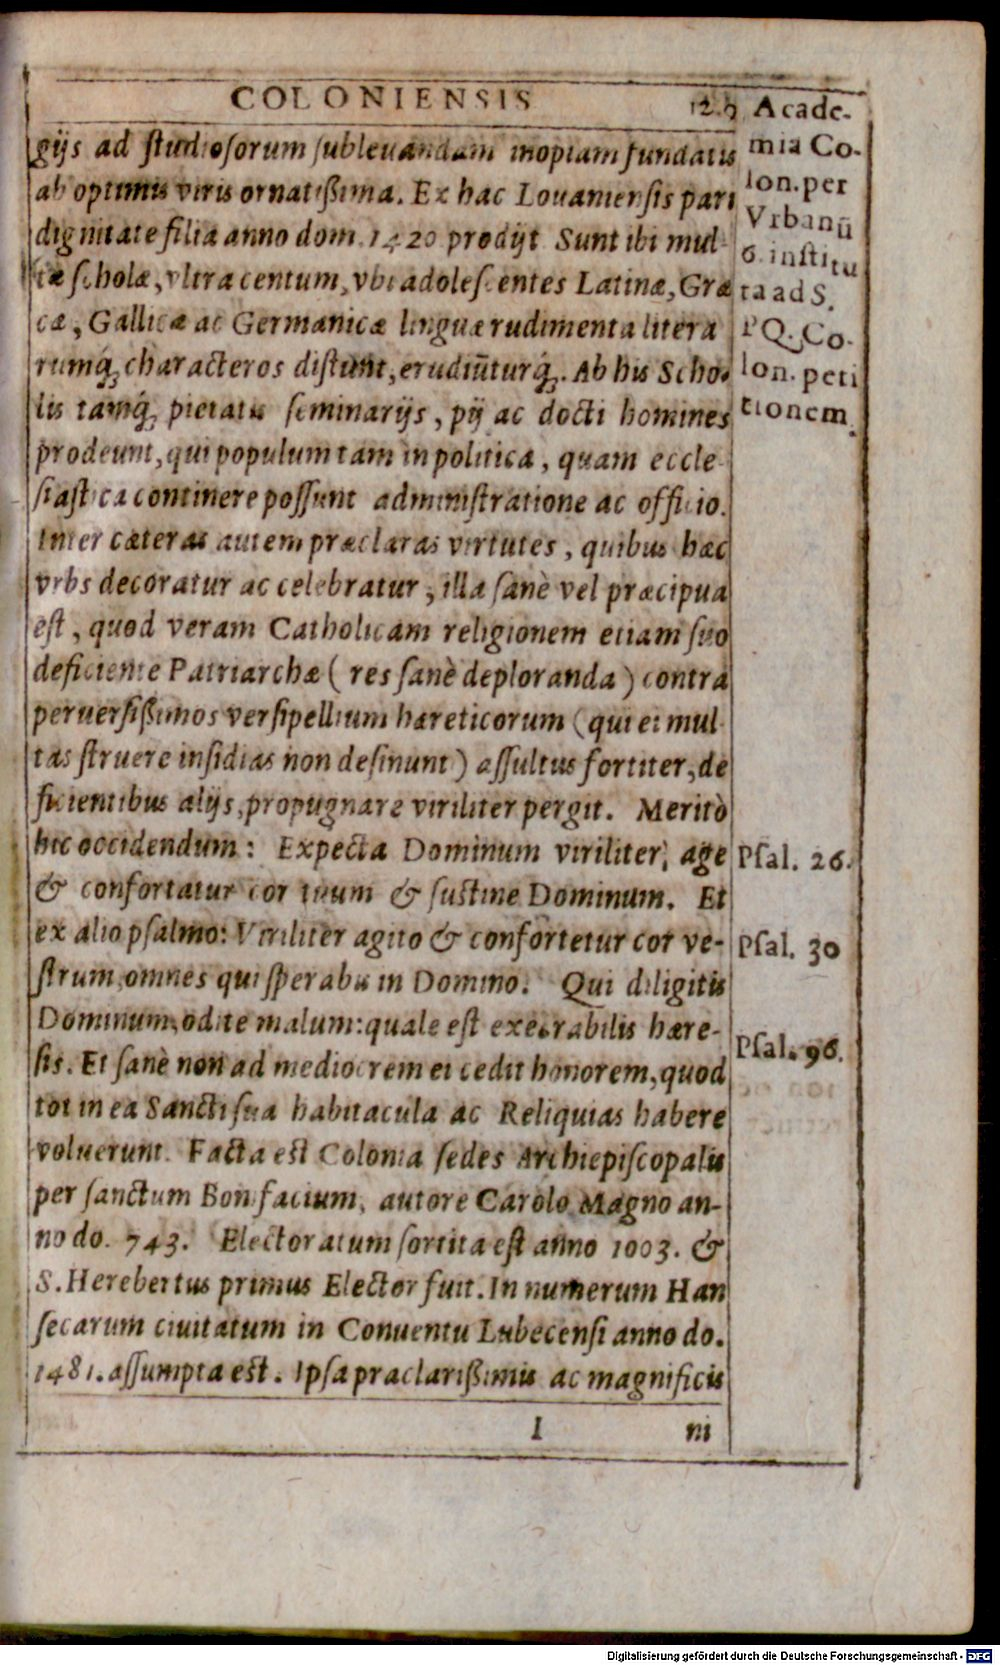 COLONIENSIS 129
gijs ad studiosorum subleuandam inopiam fundatis
ab optimis viris ornatißima. Ex hac Louaniensis pari
dignitate filia anno dom. 1420 prodijt Sunt ibi mul-
tæ scholæ, vltra centum, vbi adolescentes Latinæ, Græ
cæ, Gallicæ ac Germanicæ linguæ rudimenta litera
rumq́; characteros discunt, erudiūturq́;. Ab his Scho-
lis tamq́; pietatis seminarijs, pij ac docti homines
prodeunt, qui populum tam in politica, quam eccle-
siastica continere possunt administratione ac officio.
Inter cæteras autem præclaras virtutes, quibus hæc
vrbs decoratur ac celebratur, illa sanè vel præcipua
est, quod veram Catholicam religionem etiam suo
deficiente Patriarchæ (res sanè deploranda) contra
peruersißimos versipellium hæreticorum (qui ei mul-
tas struere insidias non desinunt) assultus fortiter, de
ficientibus alijs, propugnare viriliter pergit. Meritò
hic occidendum: Expecta Dominum viriliter, age
& confortatur cor tuum & sustine Dominum. Et
ex alio psalmo: Viriliter agito & confortetur cor ve-
strum, omnes qui sperabis in Domino. Qui diligitis
Dominum, odite malum: quale est execrabilis hære-
sis. Et sanè non ad mediocrem ei cedit honorem, quod
tot in ea Sancti sua habitacula ac Reliquias habere
voluerunt. Facta est Colonia sedes Archiepiscopalis
per sanctum Bonifacium, autore Carolo Magno an-
no do. 743. Electoratum sortita est anno 1003. &
S. Herebertus primus Elector fuit. In numerum Han
secarum ciuitatum in Conuentu Lubecensi anno do.
1481. assumpta est. Ipsa præclarißimis ac magnificis
I ni
Acade-
mia Co-
lon. per
Vrbanū
6. institu
ta ad S.
PQ. Co-
lon. peti
tionem.
Psal. 26.
Psal. 30
Psal. 96.
Digitalisierung gefördert durch die Deutsche Forschungsgemeinschaft - DFG